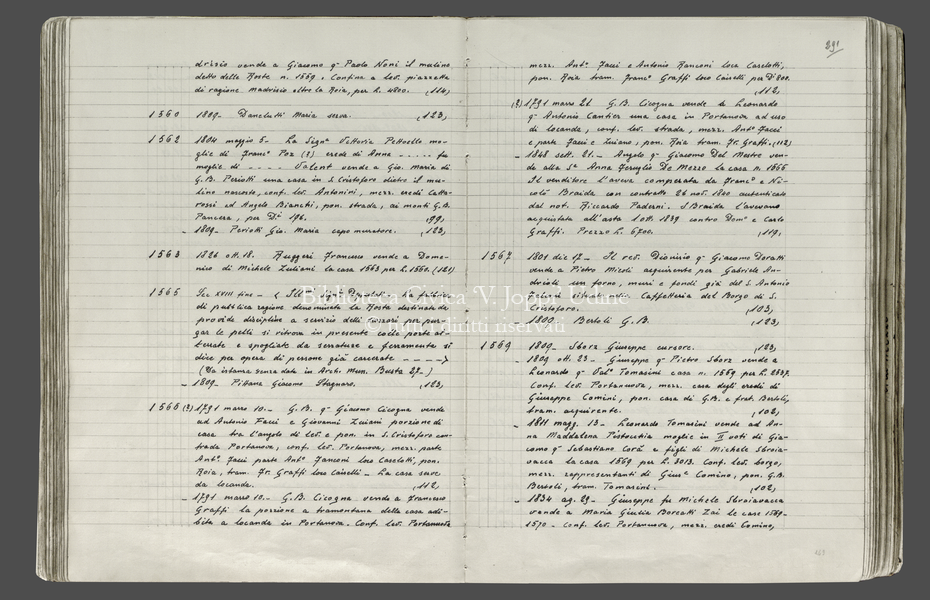 drizio vende a Giacomo q<sup>m</sup> Paolo Noni il mulino
detto della Roste n. 1559. Confina a lev. piazzetta
di ragione Madrizio oltre la Roia, per L. 4800. (114)
1560 1809. Danelutti Maria serva. (123)
1562 1804 maggio 5 - La Sig.ra Vittoria Pettoello mo-
glie di Franc.o Poz (?) erede di Anna - - - - - fu
moglie di - - - - Valent vende a Gio. Maria di
G.B. Periotti una casa in S. Cristoforo dietro il mu-
lino nascosto, conf. lev. Antonini, mezz. eredi Calla-
rossi ed Angelo Bianchi, pon. strada, ai monti G.B.
Pancera, per D.ti 196. (99)
- 1809 - Periotti Gio. Maria capo muratore. (123)
1563 1826 ott. 18. Ruggeri Francesco vende a Dome-
nico di Michele Zuliani la casa 1563 per L. 1560. (121)
1565 Sec. XVIII fine -
di pubblica ragione denominata la Roste destinata da
provvide discipline a servizio delli per pur-
gar le pelli si ritrova in presente colle porte at-
terrate e spogliate da serrature e ferramenta si
dice per opera di persone già carcerate - - - - >
(Da istanza senza data in Arch. Mun. Busta 27 -)
- 1809 - Pittana Giacomo Stagnaro. (123)
1566 (?) 1791 marzo 10 - G.B. q<sup>m</sup> Giacomo Cicogna vende
ad Antonio Facci e Giovanni Luiani porzione di
casa tra l'angolo di lev. e pon. in S. Cristoforo con-
trada Portanova, conf. lev. Portanova, mezz. parte
Ant.o Facci parte Ant.o Janconi loco Caselotti, pon.
Roia, tram. Fr. Graffi loco Cainelli - La casa serve
da locanda. (112)
- 1791 marzo 10 - G.B. Cicogna vende a Francesco
Graffi la porzione a tramontana della casa adi-
bita a locanda in Portanova. Conf. lev. Portanuova
391
mezz. Ant.o Facci e Antonio Ranconi loco Caselotti,
pon. Roia tram. Franc.o Graffi loco Cainelli per D.ti 800.
(112)
(?) 1791 marzo 21 G.B. Cicogna vende a Leonardo
q<sup>m</sup> Antonio Cantier una casa in Portanova ad uso
di locanda, conf. lev. strada, mezz. Ant.o Facci
e parte Facci e Luiano, pon. Roia tram. Fr. Graffi. (112)
- 1848 sett. 21 - Angelo q<sup>m</sup> Giacomo Del Mestre ven-
de alla S.ra Anna Feruglio De Mezzo la casa n. 1566
Il venditore l'aveva comperata da Franc.o e Ni-
colò Braida con contratto 26 nov. 1840 autenticato
dal not. Riccardo Paderni. I Braida l'avevano
acquistata all'asta 1 ott. 1839 contro Dom.o e Carlo
Graffi. Prezzo L. 6700. (119)
1567 1801 dic 17 - Il rev. Dionisio q<sup>m</sup> Giacomo Doratti
vende a Pietro Micoli acquirente per Gabriele An-
drioli un forno, muri e fondi già del S. Antonio
Caffetteria del Borgo di S.
Cristoforo. (103)
- 1809 - Bertoli G.B. (123)
1569 1809 - Sborz Giuseppe cursore. (123)
- 1809 ott. 23 - Giuseppe q<sup>m</sup> Pietro Sborz vende a
Leonardo q<sup>m</sup> Val.o Tomasini casa n. 1569 per L. 2837.
Conf. lev. Portanuova, mezz. casa degli eredi di
Giuseppe Comini, pon. casa di G.B. e frat. Bertoli,
tram. acquirente. (102)
- 1811 magg. 13 - Leonardo Tomasini vende ad An-
na Maddalena Pistocchia moglie in II voti di Gia-
como q<sup>m</sup> Sebastiano Corà e figli di Michele Sbroia-
vacca la casa 1569 per L. 3013. Conf. lev. borgo,
mezz. rappresentanti di Gius.e Comino, pon. G.B.
Bertoli, tram. Tomasini. (102)
- 1834 ag. 29 - Giuseppe fu Michele Sbroiavacca
vende a Maria Giulia Borcatti Zai le case 1569-
1570 - Conf. lev. Portanuova, mezz. eredi Comino,
Biblioteca Civica V. Joppi Udine
© tutti i diritti riservati